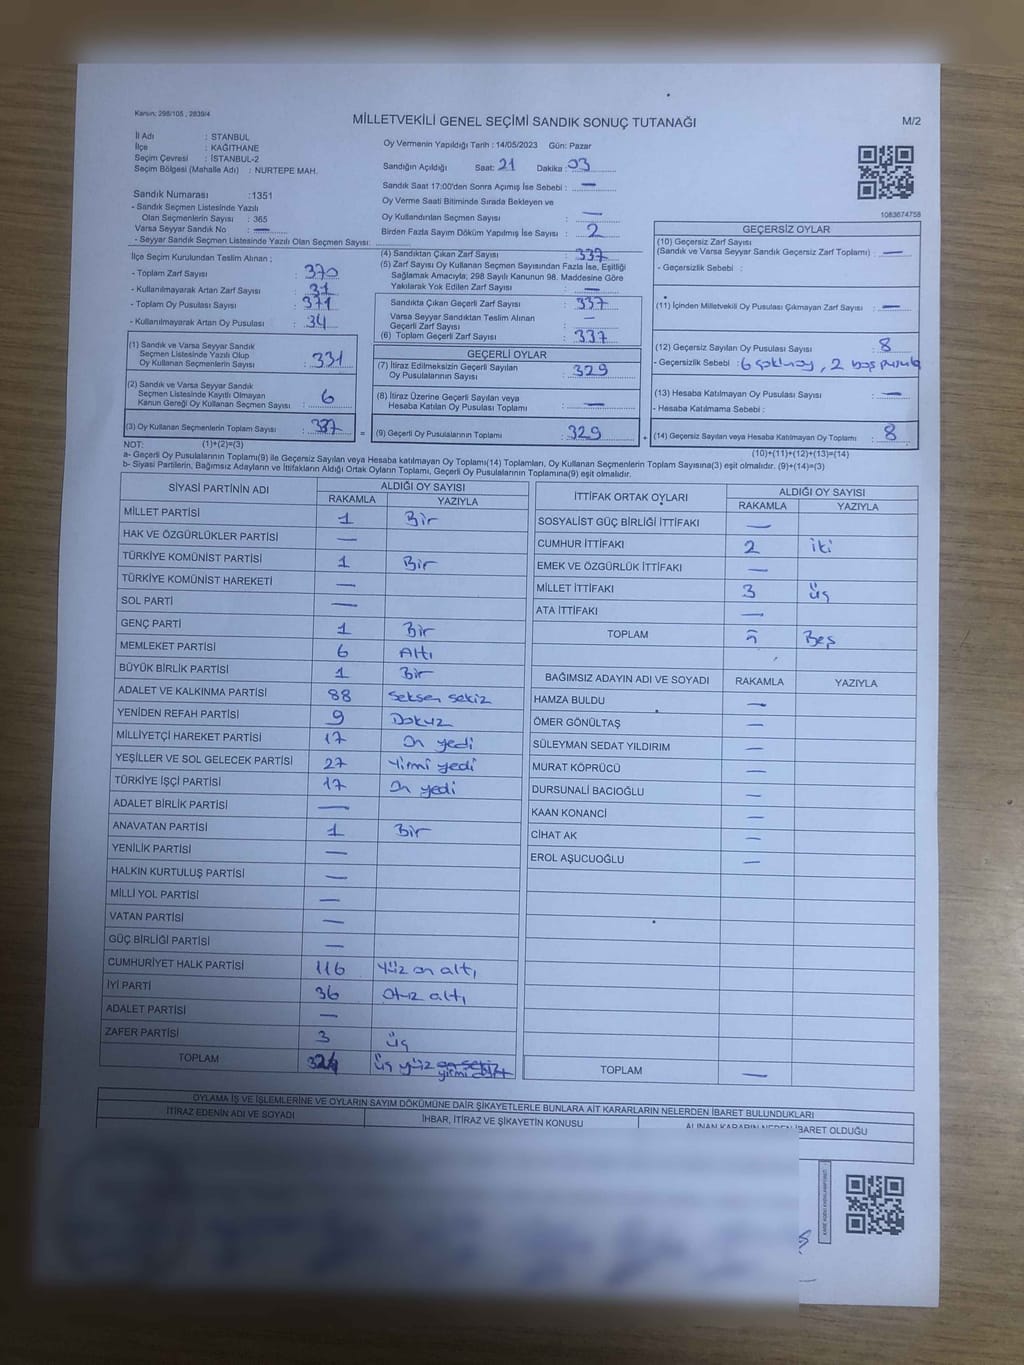 Kanun; 298/105 , 2839/4
MİLLETVEKİLİ GENEL SEÇİMİ SANDIK SONUÇ TUTANAĞI
M/2
İl Adı : STANBUL
İlçe : KAĞITHANE
Seçim Çevresi : İSTANBUL-2
Seçim Bölgesi (Mahalle Adı) : NURTEPE MAH.
Oy Vermenin Yapıldığı Tarih : 14/05/2023 Gün: Pazar
Sandığın Açıldığı Saat: 21 Dakika : 03
Sandık Saat 17:00'den Sonra Açımış İse Sebebi : —
Oy Verme Saati Bitiminde Sırada Bekleyen ve
Oy Kullandırılan Seçmen Sayısı : —
Birden Fazla Sayım Döküm Yapılmış İse Sayısı : 2
1083674758
Sandık Numarası :1351
- Sandık Seçmen Listesinde Yazılı
Olan Seçmenlerin Sayısı : 365
Varsa Seyyar Sandık No : —
- Seyyar Sandık Seçmen Listesinde Yazılı Olan Seçmen Sayısı:
İlçe Seçim Kurulundan Teslim Alınan ;
- Toplam Zarf Sayısı : 370
- Kullanılmayarak Artan Zarf Sayısı : 31
- Toplam Oy Pusulası Sayısı : 371
- Kullanılmayarak Artan Oy Pusulası : 34
(1) Sandık ve Varsa Seyyar Sandık
Seçmen Listesinde Yazılı Olup
Oy Kullanan Seçmenlerin Sayısı : 331
(2) Sandık ve Varsa Seyyar Sandık
Seçmen Listesinde Kayıtlı Olmayan
Kanun Gereği Oy Kullanan Seçmen Sayısı : 6
(3) Oy Kullanan Seçmenlerin Toplam Sayısı : 337
(4) Sandıktan Çıkan Zarf Sayısı : 337
(5) Zarf Sayısı Oy Kullanan Seçmen Sayısından Fazla İse, Eşitliği
Sağlamak Amacıyla; 298 Sayılı Kanunun 98. Maddesine Göre
Yakılarak Yok Edilen Zarf Sayısı : —
Sandıkta Çıkan Geçerli Zarf Sayısı : 337
Varsa Seyyar Sandıktan Teslim Alınan
Geçerli Zarf Sayısı : —
(6) Toplam Geçerli Zarf Sayısı : 337
GEÇERLİ OYLAR
(7) İtiraz Edilmeksizin Geçerli Sayılan
Oy Pusulalarının Sayısı : 329
(8) İtiraz Üzerine Geçerli Sayılan veya
Hesaba Katılan Oy Pusulası Toplamı : —
= (9) Geçerli Oy Pusulalarının Toplamı : 329
GEÇERSİZ OYLAR
(10) Geçersiz Zarf Sayısı
(Sandık ve Varsa Seyyar Sandık Geçersiz Zarf Toplamı) : —
- Geçersizlik Sebebi :
(11) İçinden Milletvekili Oy Pusulası Çıkmayan Zarf Sayısı : —
(12) Geçersiz Sayılan Oy Pusulası Sayısı : 8
- Geçersizlik Sebebi : 6 çoklu oy, 2 boş pusula
(13) Hesaba Katılmayan Oy Pusulası Sayısı : —
- Hesaba Katılmama Sebebi :
+ (14) Geçersiz Sayılan veya Hesaba Katılmayan Oy Toplamı : 8
NOT: (1)+(2)=(3)
(10)+(11)+(12)+(13)=(14)
a- Geçerli Oy Pusulalarının Toplamı(9) ile Geçersiz Sayılan veya Hesaba katılmayan Oy Toplamı(14) Toplamları, Oy Kullanan Seçmenlerin Toplam Sayısına(3) eşit olmalıdır. (9)+(14)=(3)
b- Siyasi Partilerin, Bağımsız Adayların ve İttifakların Aldığı Ortak Oyların Toplamı, Geçerli Oy Pusulalarının Toplamına(9) eşit olmalıdır.
SİYASİ PARTİNİN ADI ALDIĞI OY SAYISI
RAKAMLA YAZIYLA
MİLLET PARTİSİ 1 Bir
HAK VE ÖZGÜRLÜKLER PARTİSİ —
TÜRKİYE KOMÜNİST PARTİSİ 1 Bir
TÜRKİYE KOMÜNİST HAREKETİ —
SOL PARTİ —
GENÇ PARTİ 1 Bir
MEMLEKET PARTİSİ 6 Altı
BÜYÜK BİRLİK PARTİSİ 1 Bir
ADALET VE KALKINMA PARTİSİ 88 Seksen sekiz
YENİDEN REFAH PARTİSİ 9 Dokuz
MİLLİYETÇİ HAREKET PARTİSİ 17 On yedi
YEŞİLLER VE SOL GELECEK PARTİSİ 27 Yirmi yedi
TÜRKİYE İŞÇİ PARTİSİ 17 On yedi
ADALET BİRLİK PARTİSİ —
ANAVATAN PARTİSİ 1 Bir
YENİLİK PARTİSİ —
HALKIN KURTULUŞ PARTİSİ —
MİLLİ YOL PARTİSİ —
VATAN PARTİSİ —
GÜÇ BİRLİĞİ PARTİSİ —
CUMHURİYET HALK PARTİSİ 116 Yüz on altı
İYİ PARTİ 36 Otuz altı
ADALET PARTİSİ —
ZAFER PARTİSİ 3 üç
TOPLAM 324 Üç yüz on sekiz yirmi dört
İTTİFAK ORTAK OYLARI ALDIĞI OY SAYISI
RAKAMLA YAZIYLA
SOSYALİST GÜÇ BİRLİĞİ İTTİFAKI —
CUMHUR İTTİFAKI 2 iki
EMEK VE ÖZGÜRLÜK İTTİFAKI —
MİLLET İTTİFAKI 3 üç
ATA İTTİFAKI —
TOPLAM 5 Beş
BAĞIMSIZ ADAYIN ADI VE SOYADI RAKAMLA YAZIYLA
HAMZA BULDU —
ÖMER GÖNÜLTAŞ —
SÜLEYMAN SEDAT YILDIRIM —
MURAT KÖPRÜCÜ —
DURSUNALİ BACIOĞLU —
KAAN KONANCİ —
CİHAT AK —
EROL AŞUCUOĞLU —
TOPLAM —
OYLAMA İŞ VE İŞLEMLERİNE VE OYLARIN SAYIM DÖKÜMÜNE DAİR ŞİKAYETLERLE BUNLARA AİT KARARLARIN NELERDEN İBARET BULUNDUKLARI
İTİRAZ EDENİN ADI VE SOYADI İHBAR, İTİRAZ VE ŞİKAYETİN KONUSU ALINAN KARARIN NEDEN İBARET OLDUĞU